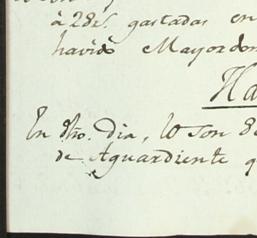 à 28rs. gastadas en
havido Mayordom
Ha
En dho. dia, lo son 8
de Aguardiente q